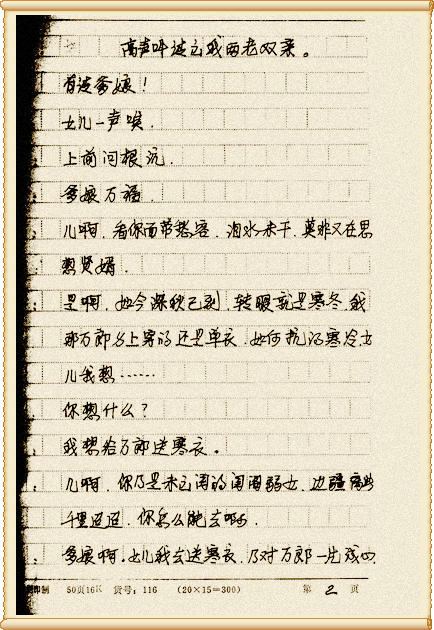 高声呼唤之我两老双亲。
有请爹娘！
女儿一声唤.
上前问根沅.
爹娘万福.
儿啊.看你面带愁容.泪水未干.莫非又在思
想贤婿.
是啊.如今深秋已到.转眼就是寒冬.我
那万郎身上穿的还是单衣.如何抗得寒冷女
儿我想……
你想什么?
我想给万郎送寒衣。
儿啊.你乃是未出阁的闺阁弱女.边疆离此
千里迢迢.你怎么能去啊.
爹娘啊.女儿我去送寒衣.乃对万郎一片
印制 50页16K 货号：116 (20×15=300) 第 2 页